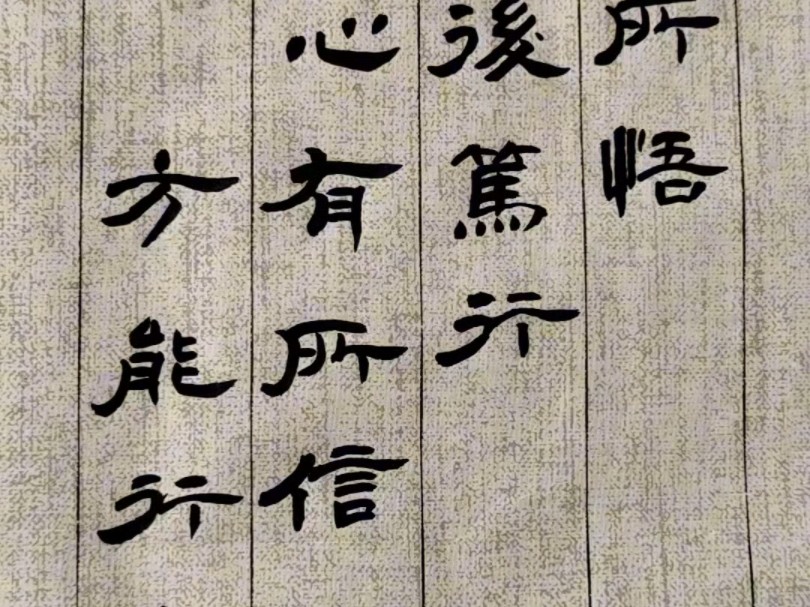 所悟
後篤行
心有所信
方能行